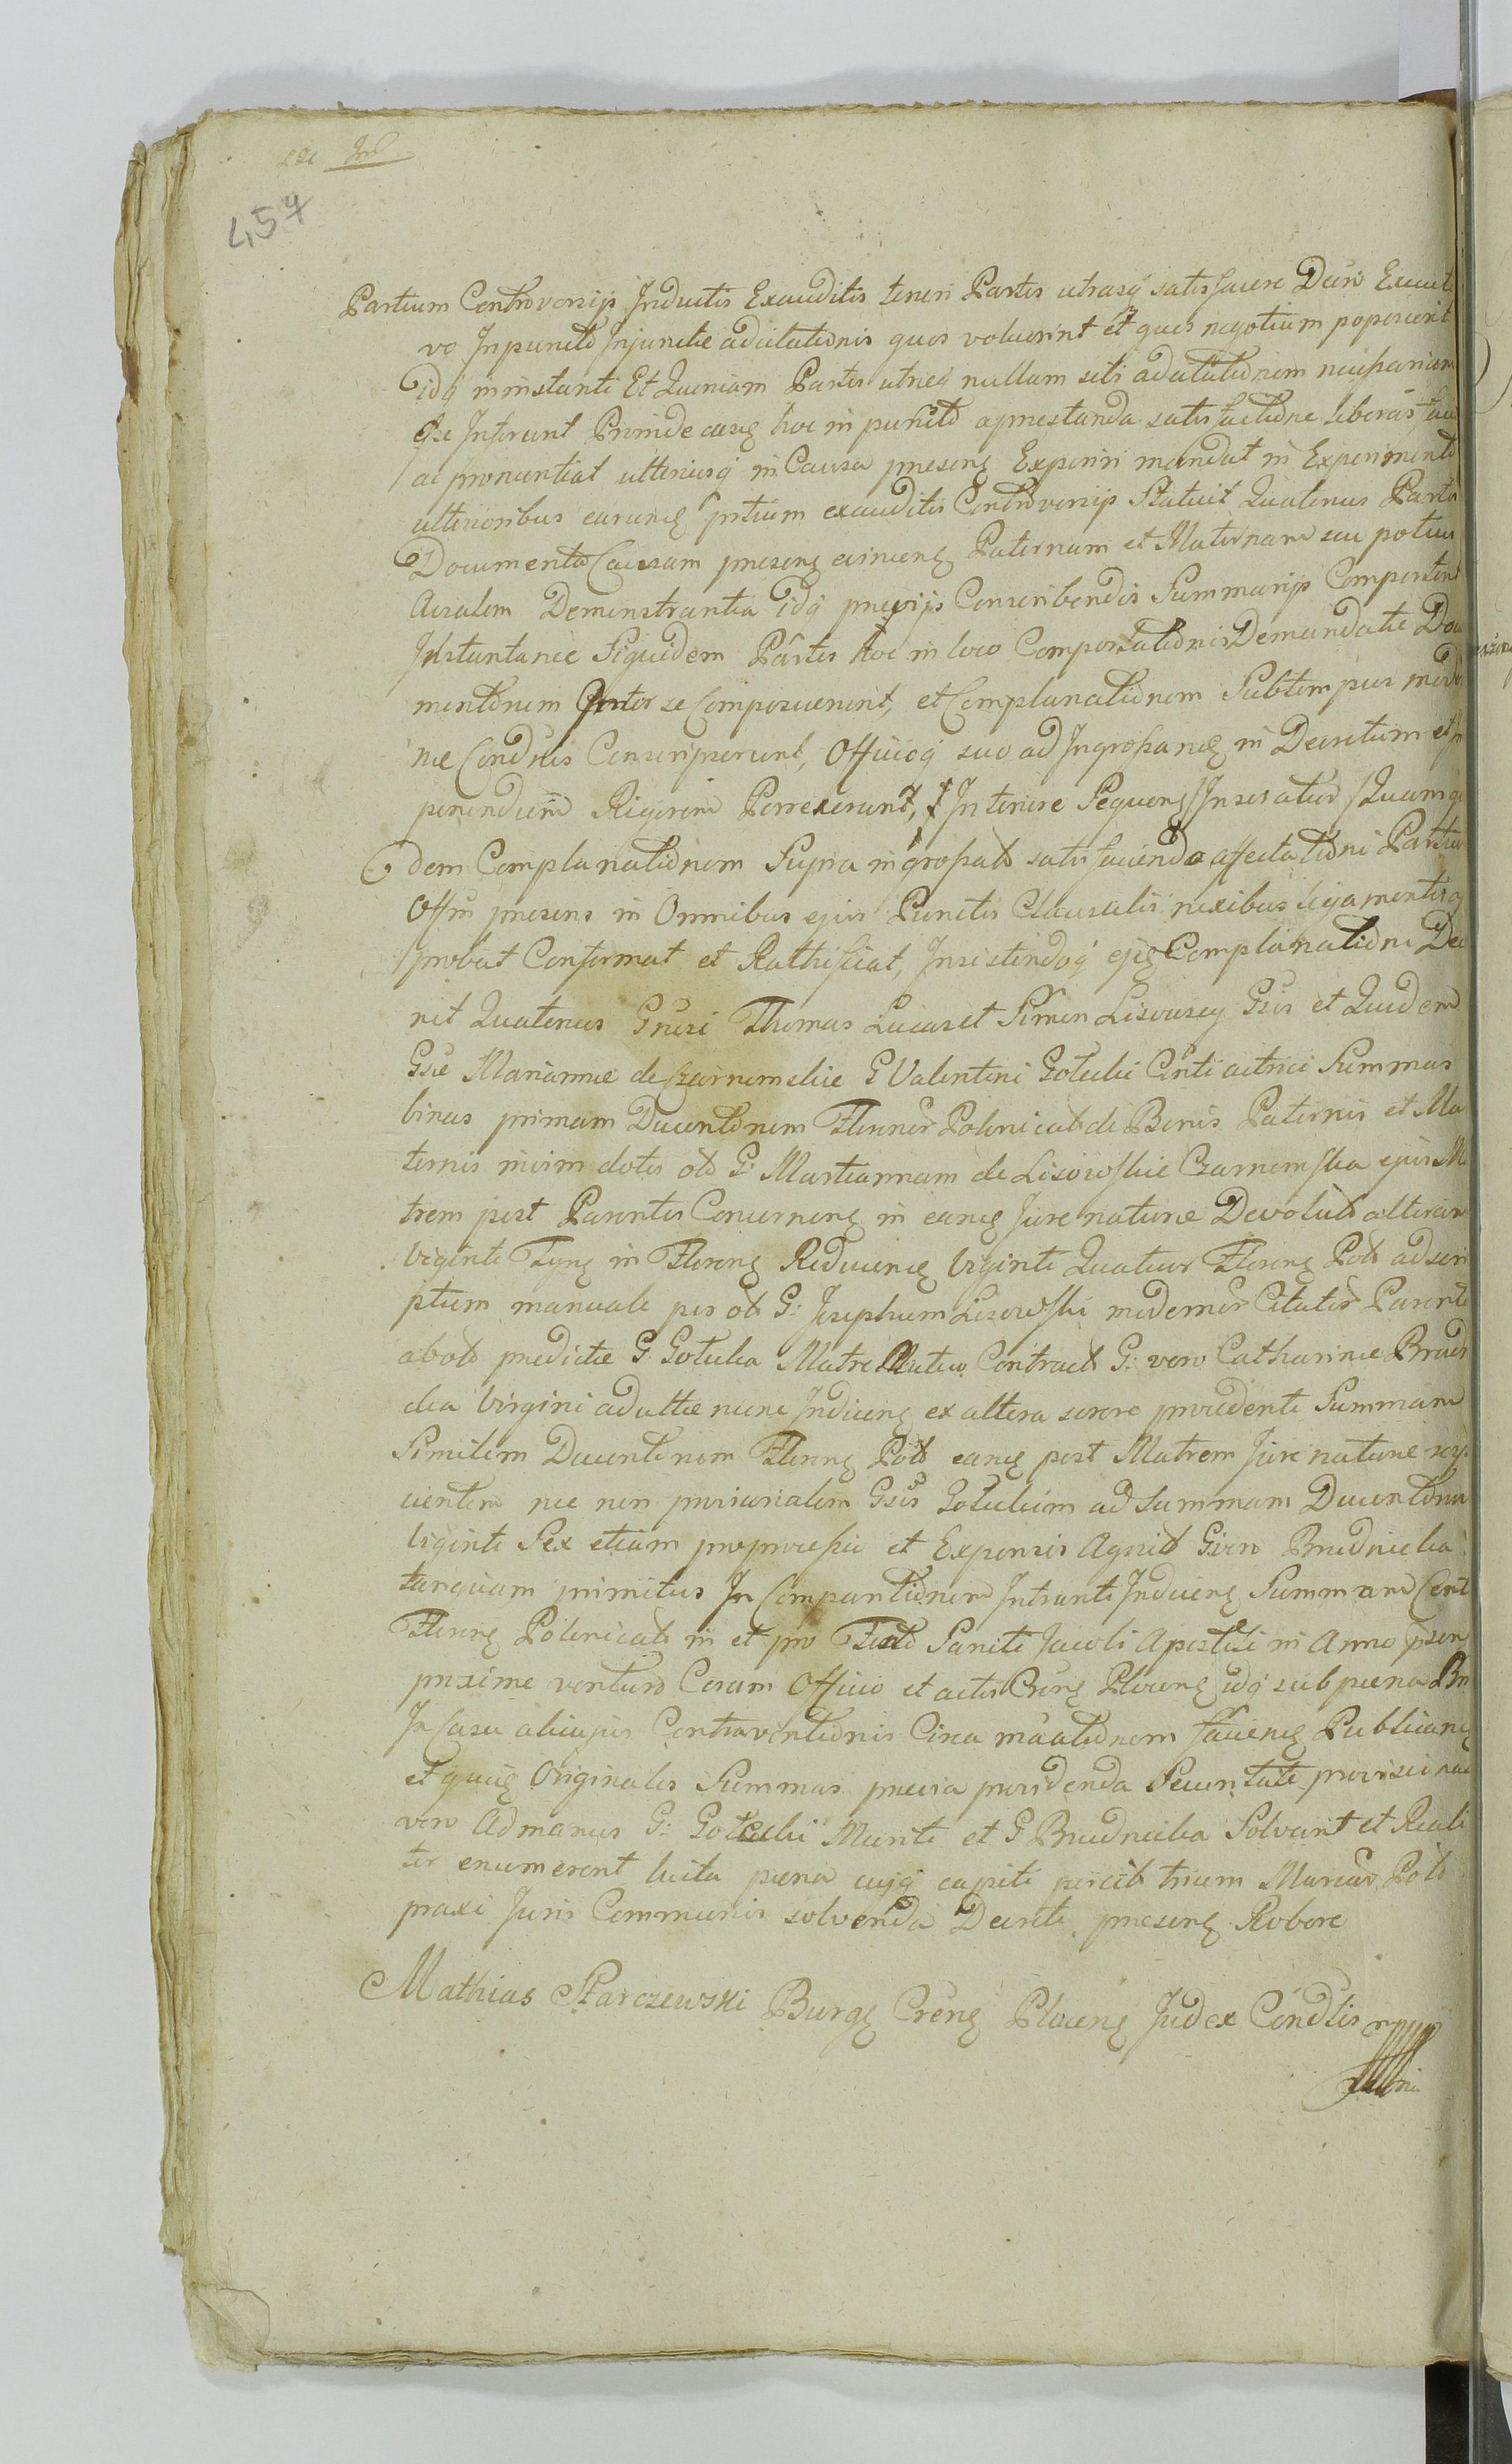 457
Partium Controversijs Inductis Exauditis teneri Partes utrasq satisfacere Decro Execut
vo In puncto Injunctæ adcitationis quos voluerint et quos negotium poposcerit
idq in instanti Et Quoniam Partes utræq nullam sibi adcitationem necessariam
esse Inferunt Proinde easq hoc in puncto a præstanda satisfactione liberas
ac pronuntiat ulteriusq in Causa præseng Experiri mandat in Experimento
ulterioribus earung ptium exauditis Controversijs Statuit Quatenus Partes
Documenta Causam præseng Paternam et Maternam seu potius
Avialem Demonstrantia idq prævijs Conscribendis Summarijs Comportent
Instantanee Siquidem Partes hoc in loco Comportationis Demandatæ Docu
mentorum Inter se Composuerunt, et Complanationem Subtempus moder
næ Condnis Conscripserunt, Officioq suo ad Ingrossang in Decretum et
ponendum Rigorem Porrexerunt, Tenore Sequeng /Inseratur/ Quamqui
dem Complanationem Supra ingrossat satisfaciendo affectationi Partium
Offm præsens in Omnibus ejus Punctis Clausulis nexibus ligamentisq
probat Confirmat et Rathificat, Insistendoq ejg Complanationi Decer
nit Quatenus Gnrsi Thomas Lucas et Simon Lisowscy Gsis et Quidem
Gsæ Mariannæ de Czarnomskie G Valentini Gotecki Conti actrici Summas
binas primam Ducentorum Florenor Polonicat de Bonis Paternis et Ma
ternis in vim dotis ob G: Martiannam de Lisowskie Czarnomska ejus Ma
trem post Parentes Concerneng in eang Jure naturæ Devolut alteram
Viginti Tynf in Floreng Reduceng Viginti Quatuor Floreng Pol ad scri
ptum manuale per ol G: Josephum Lisowski modernor Citator Parente
ab ol prædictæ G Gotecka Matre Mutuo Contract G: vero Catharinæ Brud
cka Virgini adultæ nunc Induceng ex altera sorore procedenti Summam
Similem Ducentorum Floreng Pol eang post Matrem Jure naturæ resp
cientem nec non provisionalem Gsis Goteckim ad Summam Ducentorum
Viginti Sex etiam pro processu et Expensis Agnit Gsen Brudnicka
tanquam primitus In Comparitionem Intranti Induceng Summam Cent
Floreng Polonicat in et pro Festo Sancti Jacobi Apostoli in Anno pseng
proxime venturo Coram Officio et actis Creng Ploceng idq sub poena Bn
In Casu alicujus Contraventionis Circa faceng Publicang
et quag Originales Summas prævia providenda Securitate provisiona
vero Ad manus G: Gotecki Mariti et G Brudnicka Solvant et Reali
ter enumerent lucta poena cuiq capiti trium Marcar Pol
praxi Juris Communis solvenda Decreti præseng Robore
Mathias Starczewski Burg Creng Ploceng Judex Condlis mpp